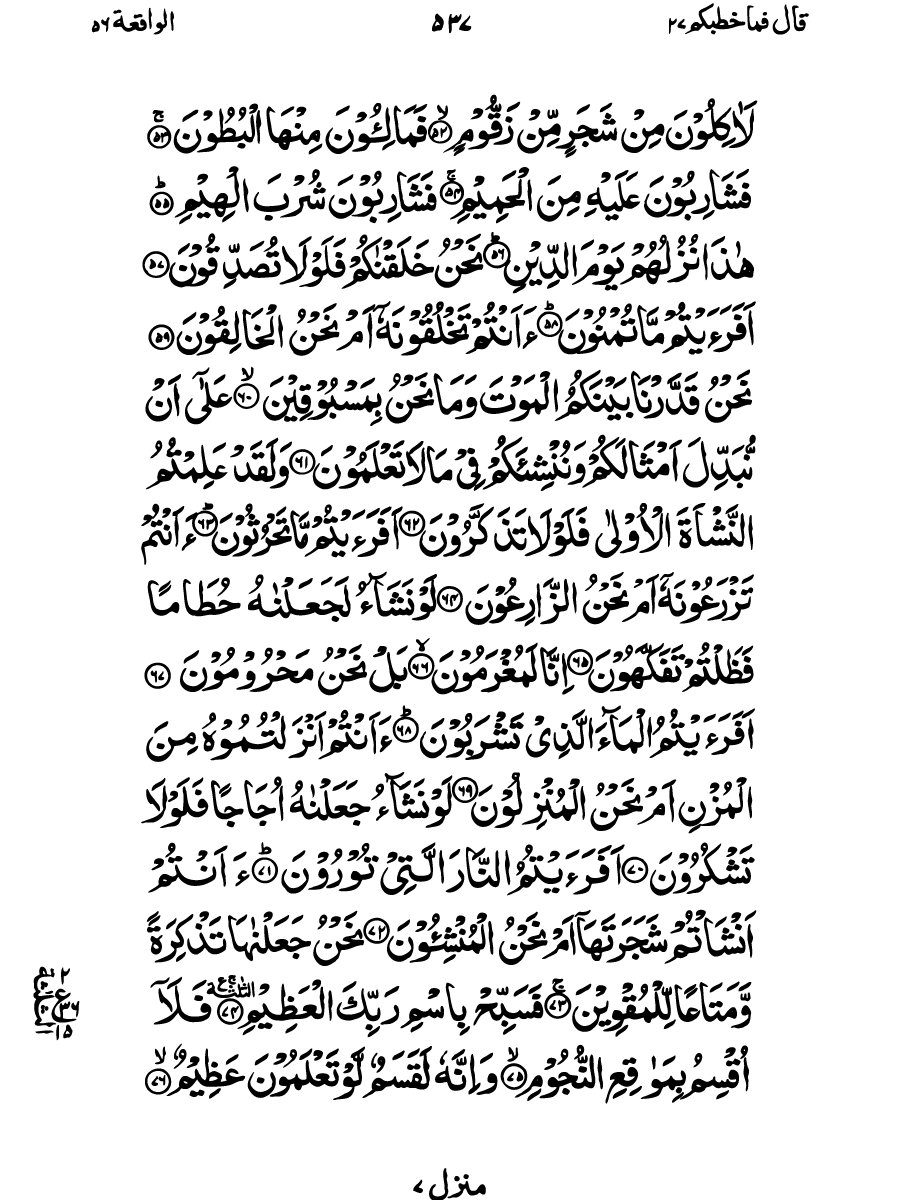 قال فماخطبكم ٢٧ ۵۳۷ الواقعة ۵٦
لَاٰكِلُوْنَ مِنْ شَجَرٍ مِّنْ زَقُّوْمٍ ۙ﴿۵۲﴾ فَمَالِـُٔوْنَ مِنْهَا الْبُطُوْنَ ۚ﴿۵۳﴾
فَشَارِبُوْنَ عَلَيْهِ مِنَ الْحَمِيْمِ ۚ﴿۵۴﴾ فَشَارِبُوْنَ شُرْبَ الْهِيْمِ ؕ﴿۵۵﴾
هٰذَا نُزُلُهُمْ يَوْمَ الدِّيْنِ ؕ﴿۵٦﴾ نَحْنُ خَلَقْنٰكُمْ فَلَوْلَا تُصَدِّقُوْنَ ﴿۵۷﴾
اَفَرَءَيْتُمْ مَّا تُمْنُوْنَ ؕ﴿۵۸﴾ ءَاَنْتُمْ تَخْلُقُوْنَهٗۤ اَمْ نَحْنُ الْخَالِقُوْنَ ﴿۵۹﴾
نَحْنُ قَدَّرْنَا بَيْنَكُمُ الْمَوْتَ وَمَا نَحْنُ بِمَسْبُوْقِيْنَ ۙ﴿٦۰﴾ عَلٰٓى اَنْ
نُّبَدِّلَ اَمْثَالَكُمْ وَنُنْشِئَكُمْ فِيْ مَا لَا تَعْلَمُوْنَ ﴿٦۱﴾ وَلَقَدْ عَلِمْتُمُ
النَّشْاَةَ الْاُوْلٰى فَلَوْلَا تَذَكَّرُوْنَ ﴿٦۲﴾ اَفَرَءَيْتُمْ مَّا تَحْرُثُوْنَ ؕ﴿٦۳﴾ ءَاَنْتُمْ
تَزْرَعُوْنَهٗۤ اَمْ نَحْنُ الزَّارِعُوْنَ ﴿٦۴﴾ لَوْ نَشَآءُ لَجَعَلْنٰهُ حُطَامًا
فَظَلْتُمْ تَفَكَّهُوْنَ ﴿٦۵﴾ اِنَّا لَمُغْرَمُوْنَ ۙ﴿٦٦﴾ بَلْ نَحْنُ مَحْرُوْمُوْنَ ﴿٦۷﴾
اَفَرَءَيْتُمُ الْمَآءَ الَّذِيْ تَشْرَبُوْنَ ؕ﴿٦۸﴾ ءَاَنْتُمْ اَنْزَلْتُمُوْهُ مِنَ
الْمُزْنِ اَمْ نَحْنُ الْمُنْزِلُوْنَ ﴿٦۹﴾ لَوْ نَشَآءُ جَعَلْنٰهُ اُجَاجًا فَلَوْلَا
تَشْكُرُوْنَ ﴿۷۰﴾ اَفَرَءَيْتُمُ النَّارَ الَّتِيْ تُوْرُوْنَ ؕ﴿۷۱﴾ ءَاَنْتُمْ
اَنْشَاْتُمْ شَجَرَتَهَاۤ اَمْ نَحْنُ الْمُنْشِـُٔوْنَ ﴿۷۲﴾ نَحْنُ جَعَلْنٰهَا تَذْكِرَةً
وَّمَتَاعًا لِّلْمُقْوِيْنَ ۚ﴿۷۳﴾ فَسَبِّحْ بِاسْمِ رَبِّكَ الْعَظِيْمِ ﴿۷۴﴾ فَلَاۤ
اُقْسِمُ بِمَوٰقِعِ النُّجُوْمِ ۙ﴿۷۵﴾ وَاِنَّهٗ لَقَسَمٌ لَّوْ تَعْلَمُوْنَ عَظِيْمٌ ۙ﴿۷٦﴾
منزل ۷